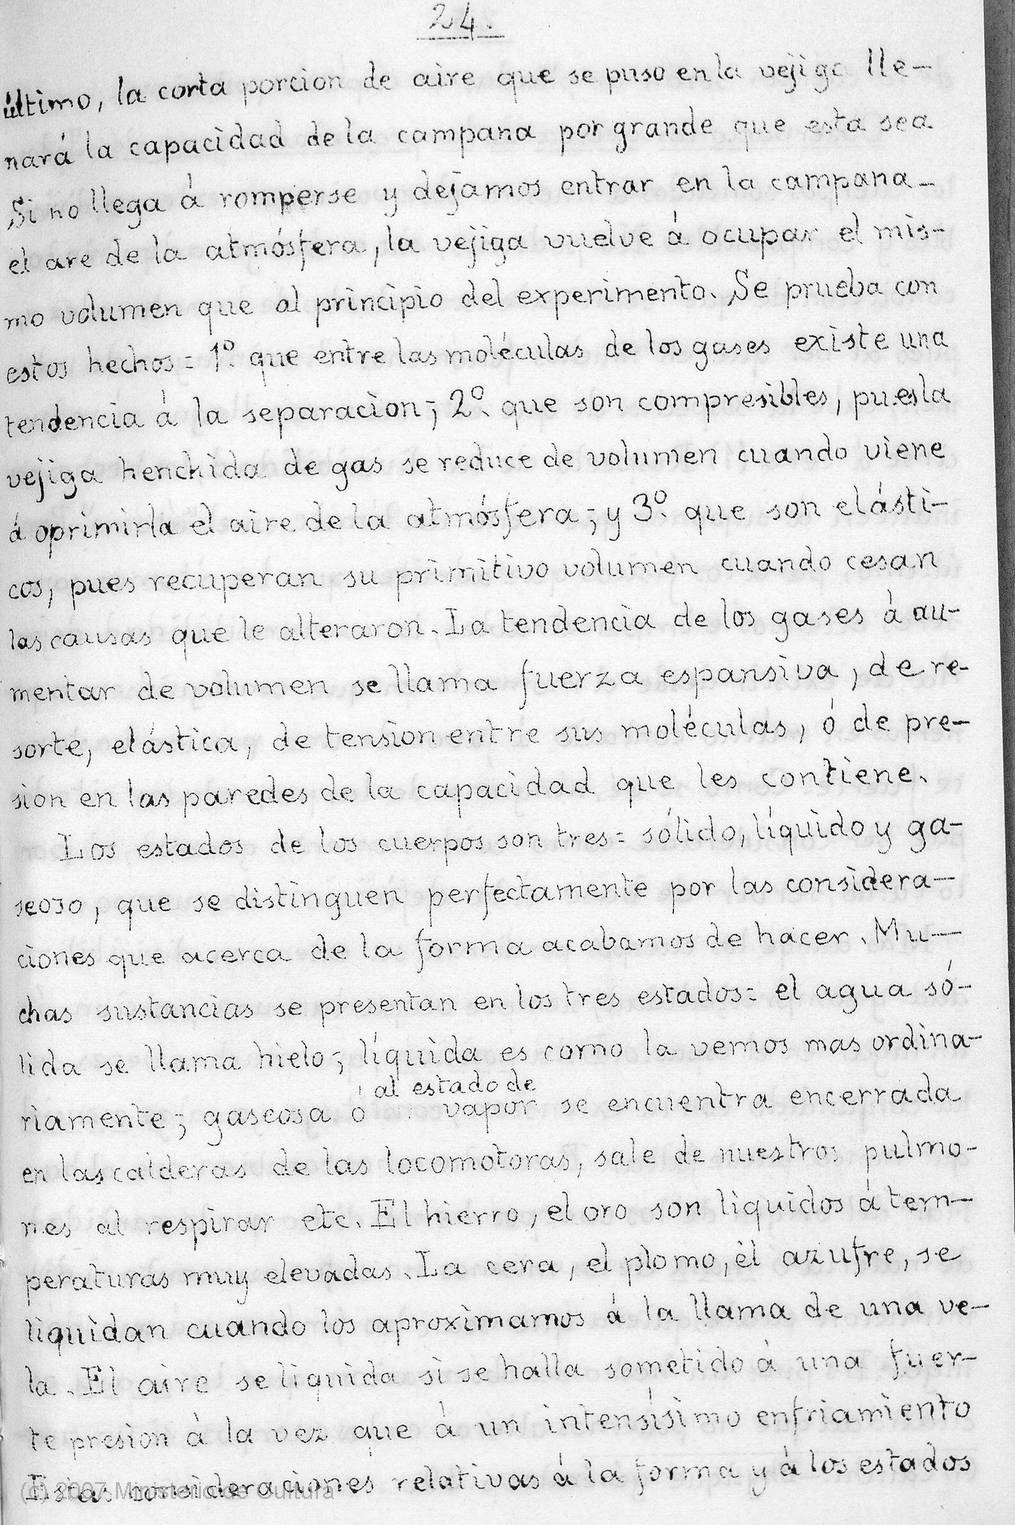 24.
último, la corta porcion de aire que se puso en la vejiga lle-
nará la capacidad de la campana por grande que esta sea
Si no llega á romperse y dejamos entrar en la campana-
el are de la atmósfera, la vejiga vuelve á ocupar el mis-
mo volumen que al principio del experimento. Se prueba con
estos hechos = 1º. que entre las moléculas de los gases existe una
tendencia á la separacion; 2º. que son compresibles, pues la
vejiga henchida de gas se reduce de volumen cuando viene
á oprimirla el aire de la atmósfera; y 3º. que son elásti-
cos, pues recuperan su primitivo volumen cuando cesan
las causas que le alteraron. La tendencia de los gases á au-
mentar de volumen se llama fuerza espansiva, de re-
sorte, elástica, de tension entre sus moléculas, ó de pre-
sion en las paredes de la capacidad que les contiene.
Los estados de los cuerpos son tres = sólido, líquido y ga-
seoso, que se distinguen perfectamente por las considera-
ciones que acerca de la forma acabamos de hacer. Mu-
chas sustancias se presentan en los tres estados = el agua só-
lida se llama hielo; líquida es como la vemos mas ordina-
al estado de
riamente; gaseosa ó vapor se encuentra encerrada
en las calderas de las locomotoras, sale de nuestros pulmo-
nes al respirar etc. El hierro, el oro son liquidos á tem-
peraturas muy elevadas. La cera, el plomo, él azufre, se
liquidan cuando los aproximamos á la llama de una ve-
la. El aire se liquida si se halla sometido á una fuer-
te presion á la vez que á un intensísimo enfriamiento
Estas consideraciones relativas á la forma y á los estados
(c) 2007 Ministerio de Cultura